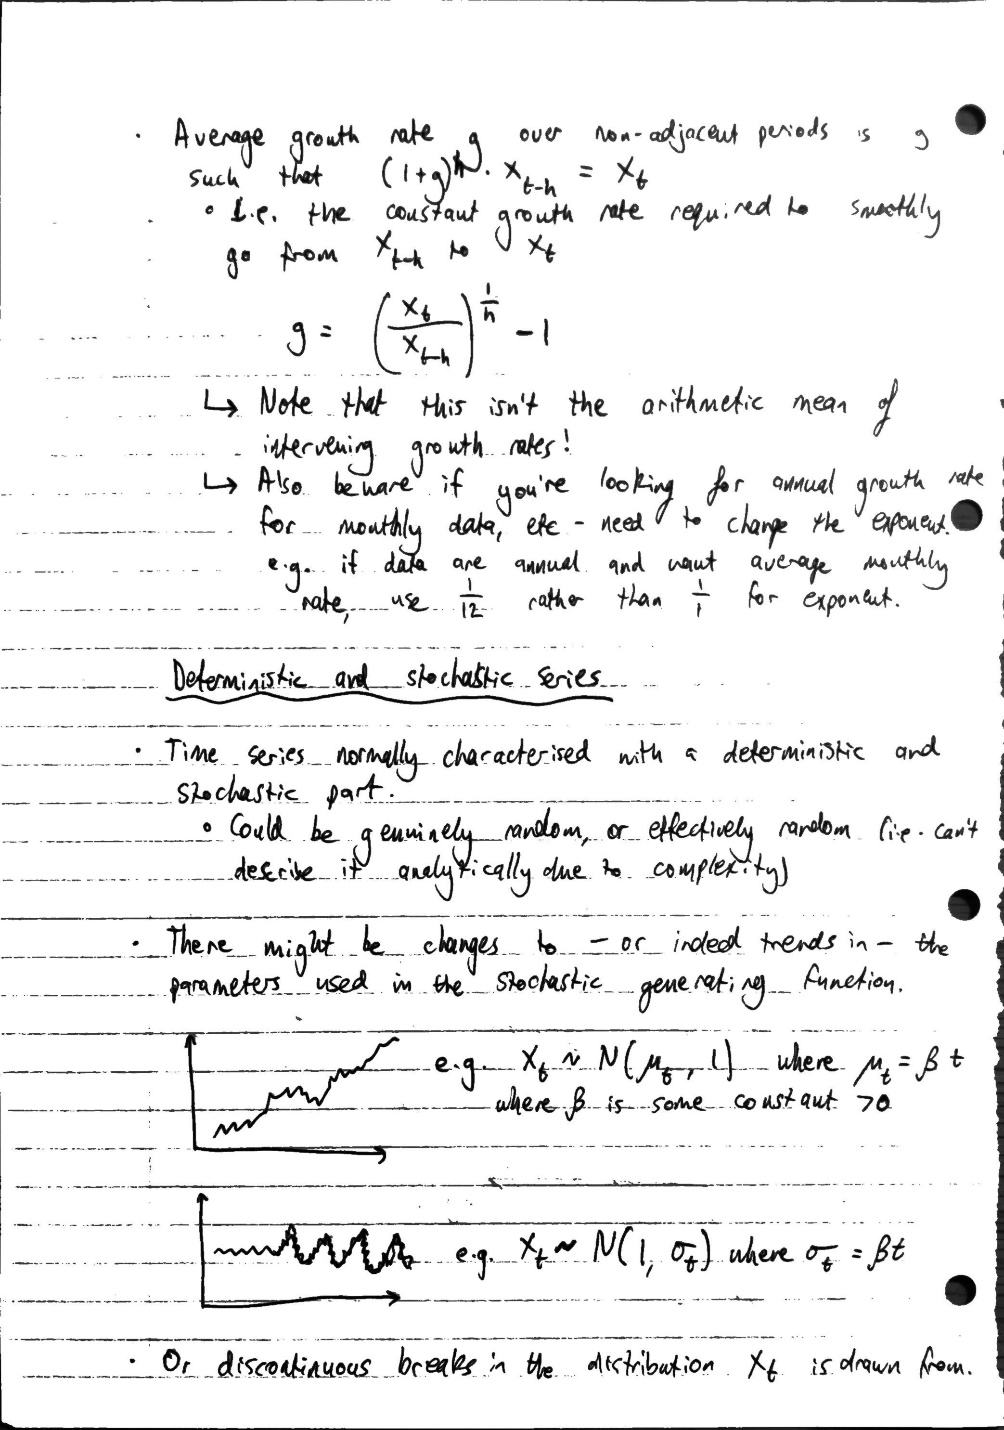 · Average growth rate g over non-adjacent periods is g
such that (1+g)^h · X_{t-h} = X_t
∘ I.e. the constant growth rate required to smoothly
go from X_{t-h} to X_t
g = (X_t / X_{t-h})^{1/h} - 1
↳ Note that this isn't the arithmetic mean of
intervening growth rates!
↳ Also beware if you're looking for annual growth rate
for monthly data, etc - need to change the exponent.
e.g. if data are annual and want average monthly
rate, use 1/12 rather than 1/1 for exponent.
Deterministic and stochastic series
· Time series normally characterised with a deterministic and
stochastic part.
∘ Could be genuinely random, or effectively random (i.e. can't
describe it analytically due to complexity)
· There might be changes to - or indeed trends in - the
parameters used in the stochastic generating function.
e.g. X_t ~ N(μ_t, 1) where μ_t = β t
where β is some constant >0
e.g. X_t ~ N(1, σ_t) where σ_t = βt
· Or discontinuous breaks in the distribution X_t is drawn from.